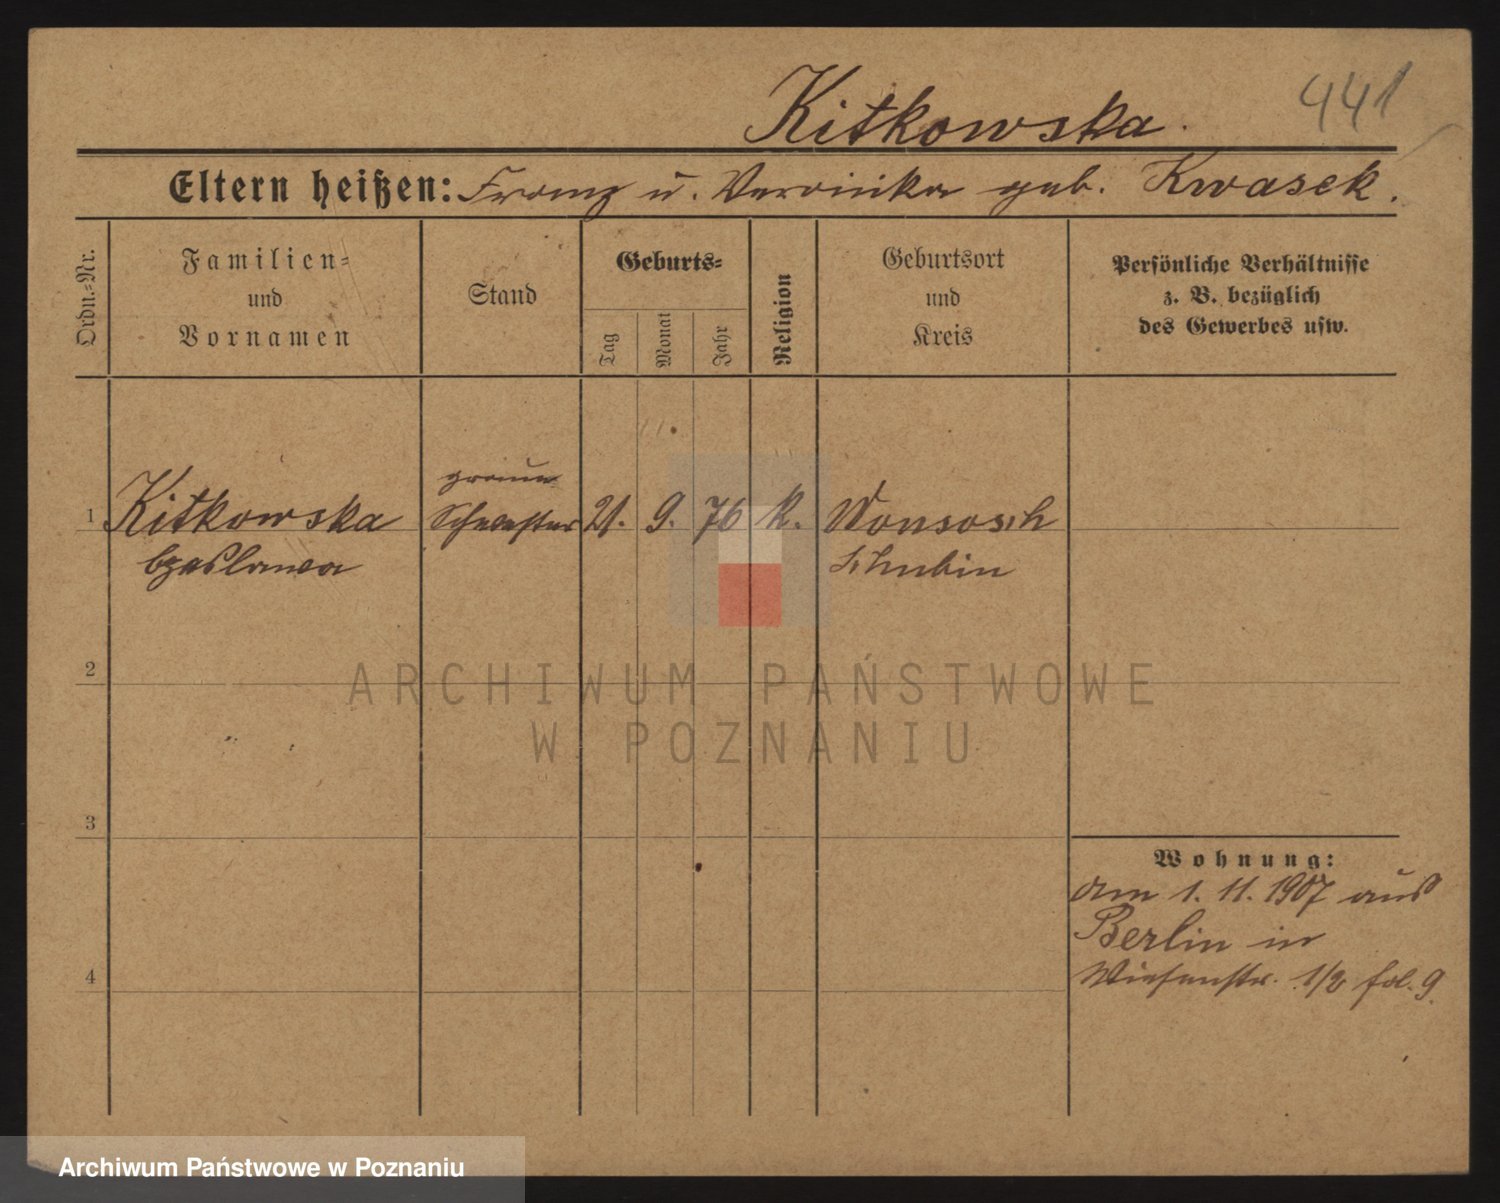 441
Kitkowska.
Eltern heißen: Franz u. Veronika geb. Kwasek.
Ordn.-Nr.
Familien-
und
Vornamen
Stand
Geburts-
Tag
Monat
Jahr
Religion
Geburtsort
und
Kreis
Persönliche Verhältnisse
z. B. bezüglich
des Gewerbes usw.
graue
1 Kitkowska Schwester 21. 9. 76 k. Wonsosch
Czeslawa Schubin
2
ARCHIWUM PAŃSTWOWE
W POZNANIU
3
Wohnung:
am 1. 11. 1907 aus
Berlin in
4
Wiesenstr. 1/2 fol. 9.
Archiwum Państwowe w Poznaniu